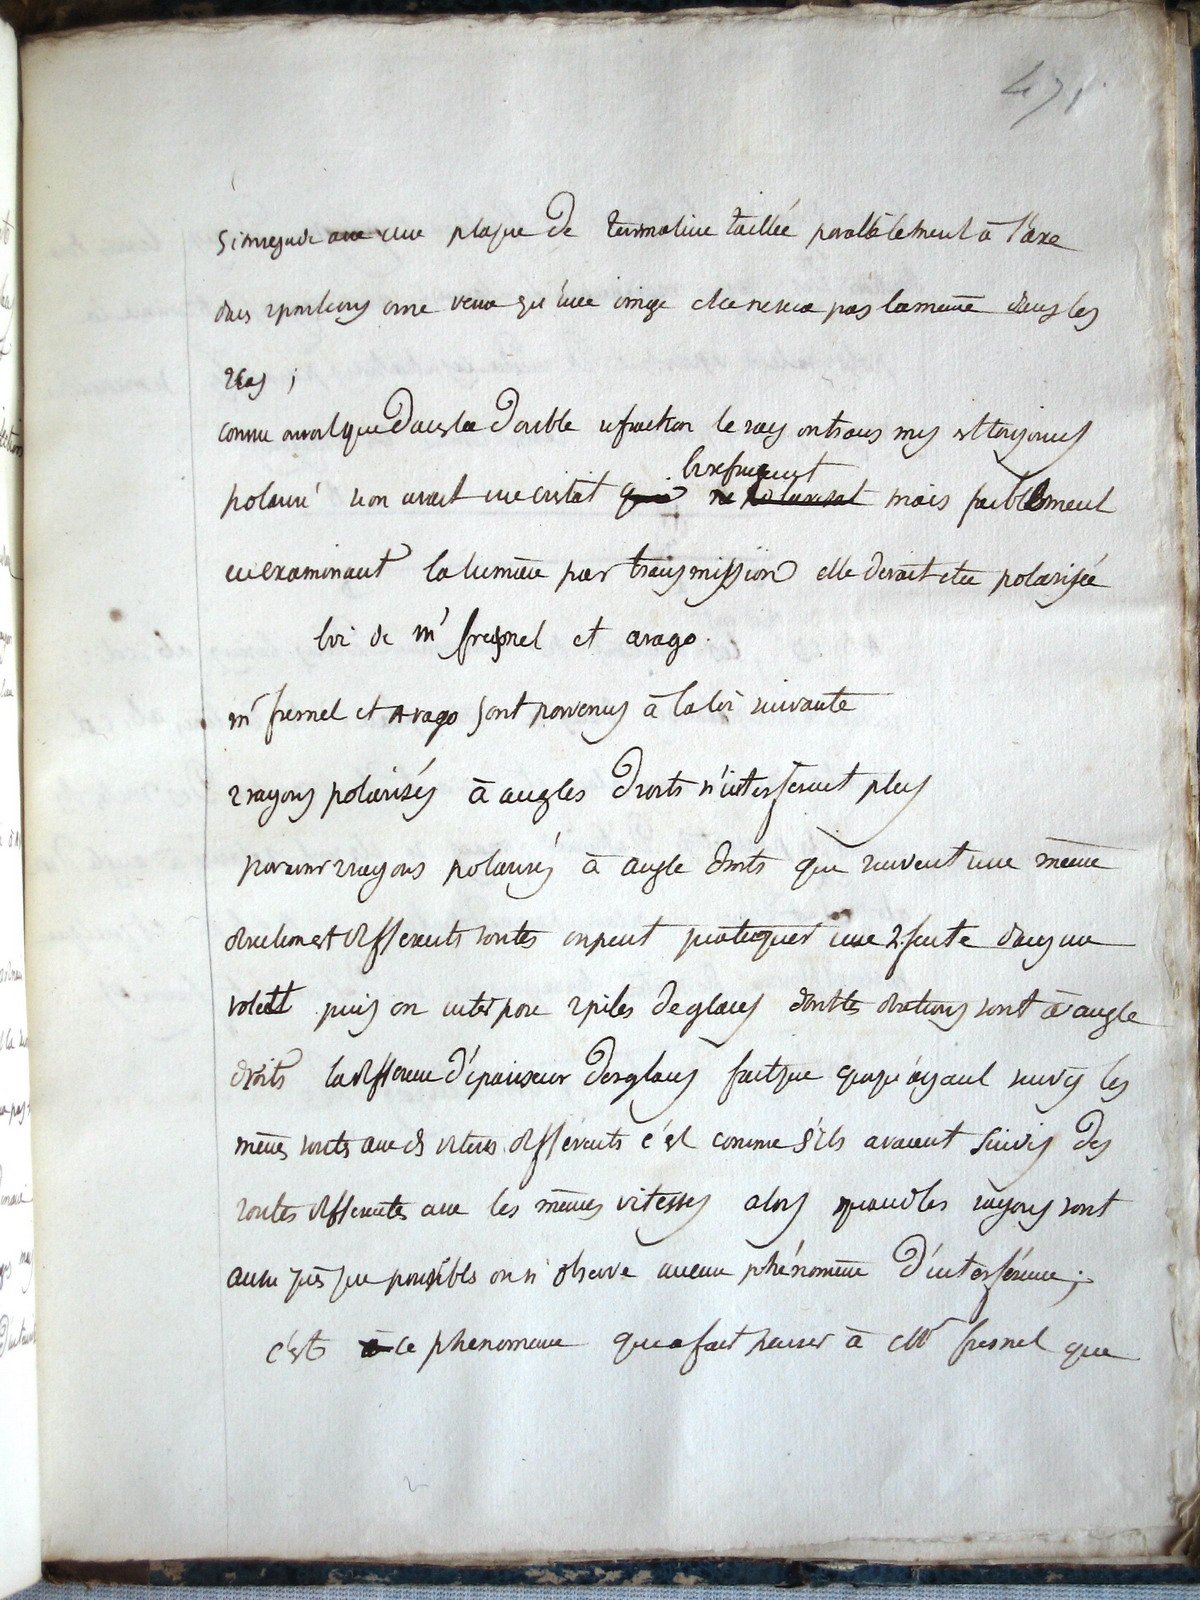 471
si on regarde avec une plaque de turmaline taillée parallèlement à l'axe
dans 2 positions on ne verra qu'une image elle ne sera pas la même dans les
2 cas ;
comme on voit que dans la double refraction le ray transmis est toujours
polarisé si on avait un cristal birefringent mais faiblement
en examinant la lumière par transmission elle devrait etre polarisée
loi de mr fresnel et arago.
mr fresnel et Arago sont parvenus à la loi suivante
2 rayons polarisés à angles droits n'interferent plus
pour avoir 2 rayons polarisés à angle droits qui suivent une même
direction et differents routes on peut pratiquer une 2 fente dans un
volett puis on interpose 2 piles de glaces dont les directions sont à angle
droits la difference d'épaisseur des glaces fait que quoiqu'ayant suivis les
mêmes routes avec des vitesses différents c'est comme s'ils avaient suivis des
routes differentes avec les mêmes vitesses alors quand les rayons sont
aussi près que possibles on n'observe aucun phénomène d'interférence ;
c'est ce phenomene qui a fait penser à Mr fresnel que